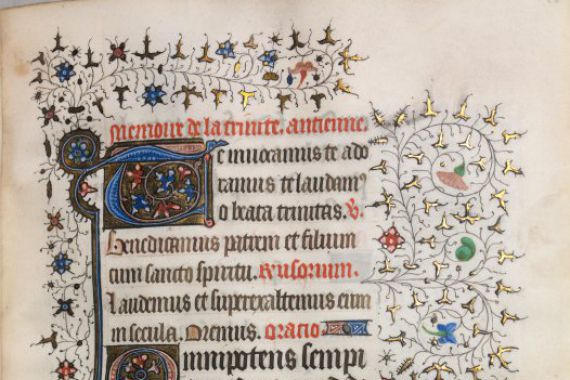 Memoire de la trinite. antienne.
Te invocamus te ado
ramus te laudamꝰ
o beata trinitas. V.
Benedicamus patrem et filium
cum sancto spiritu.
laudemus et superexaltemus eum
in secula. Oremus. oracio
Omnipotens sempi